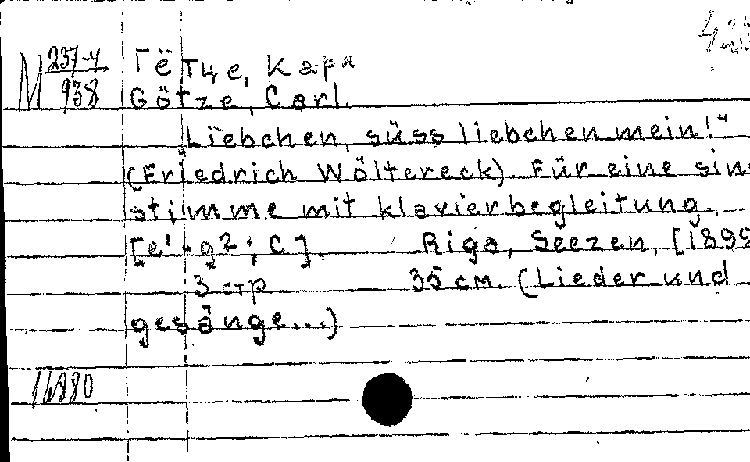 М 257-4
938
Гётце, Карл
Götze, Carl.
„Liebchen, süss liebchen mein!"
(Friedrich Wöltereck). Für eine sin
stimme mit klavierbegleitung.
[e¹-g2; C]. Riga, Seezen, [1899
3 стр 35 см. (Lieder und
gesänge...)